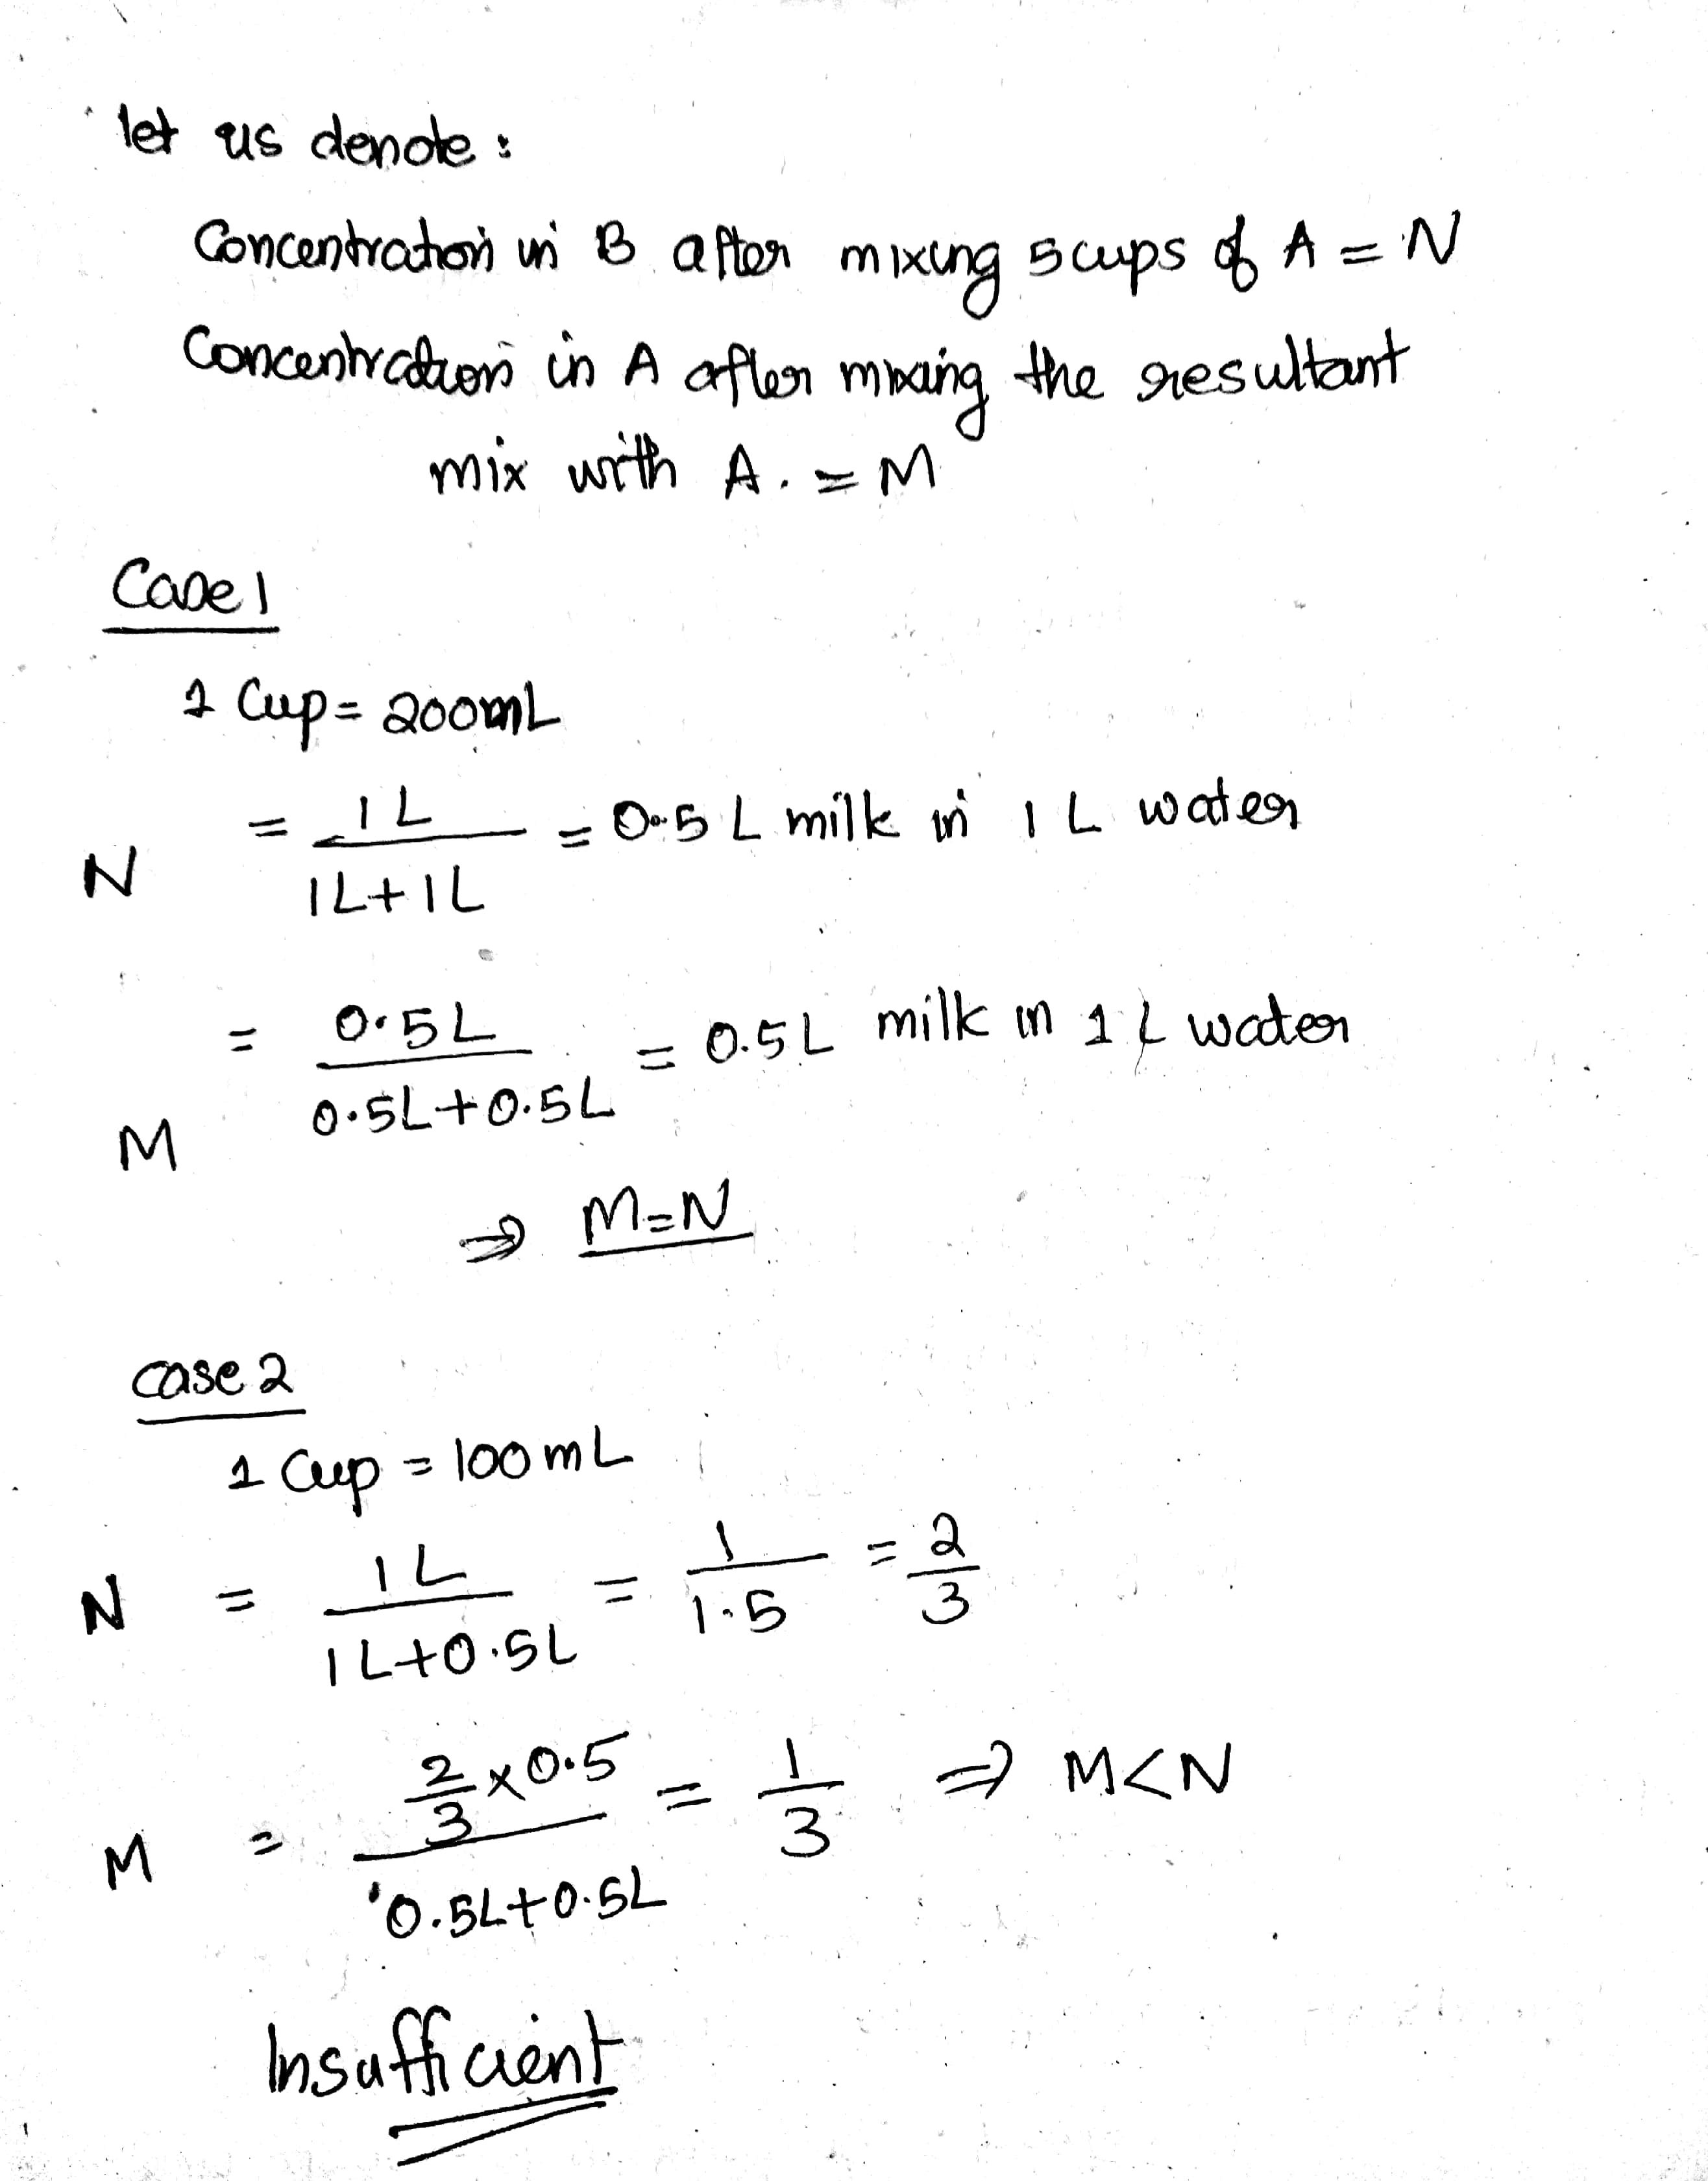 let us denote:
Concentration in B after mixing 5 cups of A = N
Concentration in A after mixing the resultant
mix with A. = M
Case 1
1 Cup = 200mL
N = 1L / 1L+1L = 0.5 L milk in 1 L water
M = 0.5L / 0.5L+0.5L = 0.5L milk in 1 L water
⇒ M=N
case 2
1 Cup = 100mL
N = 1L / 1L+0.5L = 1 / 1.5 = 2/3
M = 2/3 x 0.5 / 0.5L+0.5L = 1/3 ⇒ M<N
Insufficient